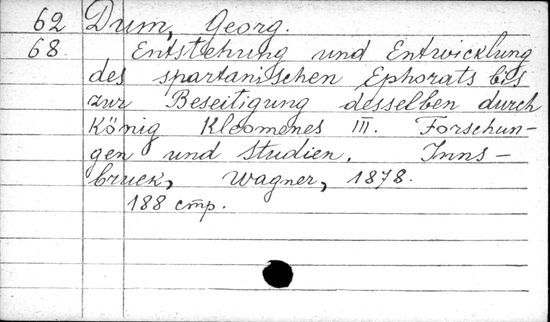 62 Dum, Georg.
68 Entstehung und Entwicklung
des spartanischen Ephorats bis
zur Beseitigung desselben durch
König Kleomenes III. Forschun-
gen und Studien. Inns-
bruck, Wagner, 1878.
188 стр.